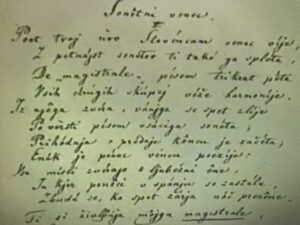 Sonétni venec.
I.
Poet tvoj nov Slovéncam venec vije,
Z petnájst sonétov ti takó ga spléta,
De "magistrale", pésem trikrat péta,
Vsih drugih skúpej véže harmonije.
Iz njéga zvira, vánjga se spet zlije
Po vŕsti pésem vsáciga sonéta;
Prihódnja v prédnje kóncu je začéta;
Enák je pévec vêncu poezíje:
Vse misli zvírajo 'z ljubézni éne,
In kjer ponóči v spánju so zastále,
Zbudé se, ko spet zárja nóč prežêne.
Ti si življénja môjga magistrale,